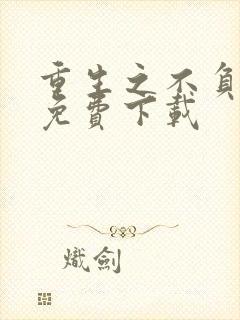 重生之不负
免費下載
熾劍